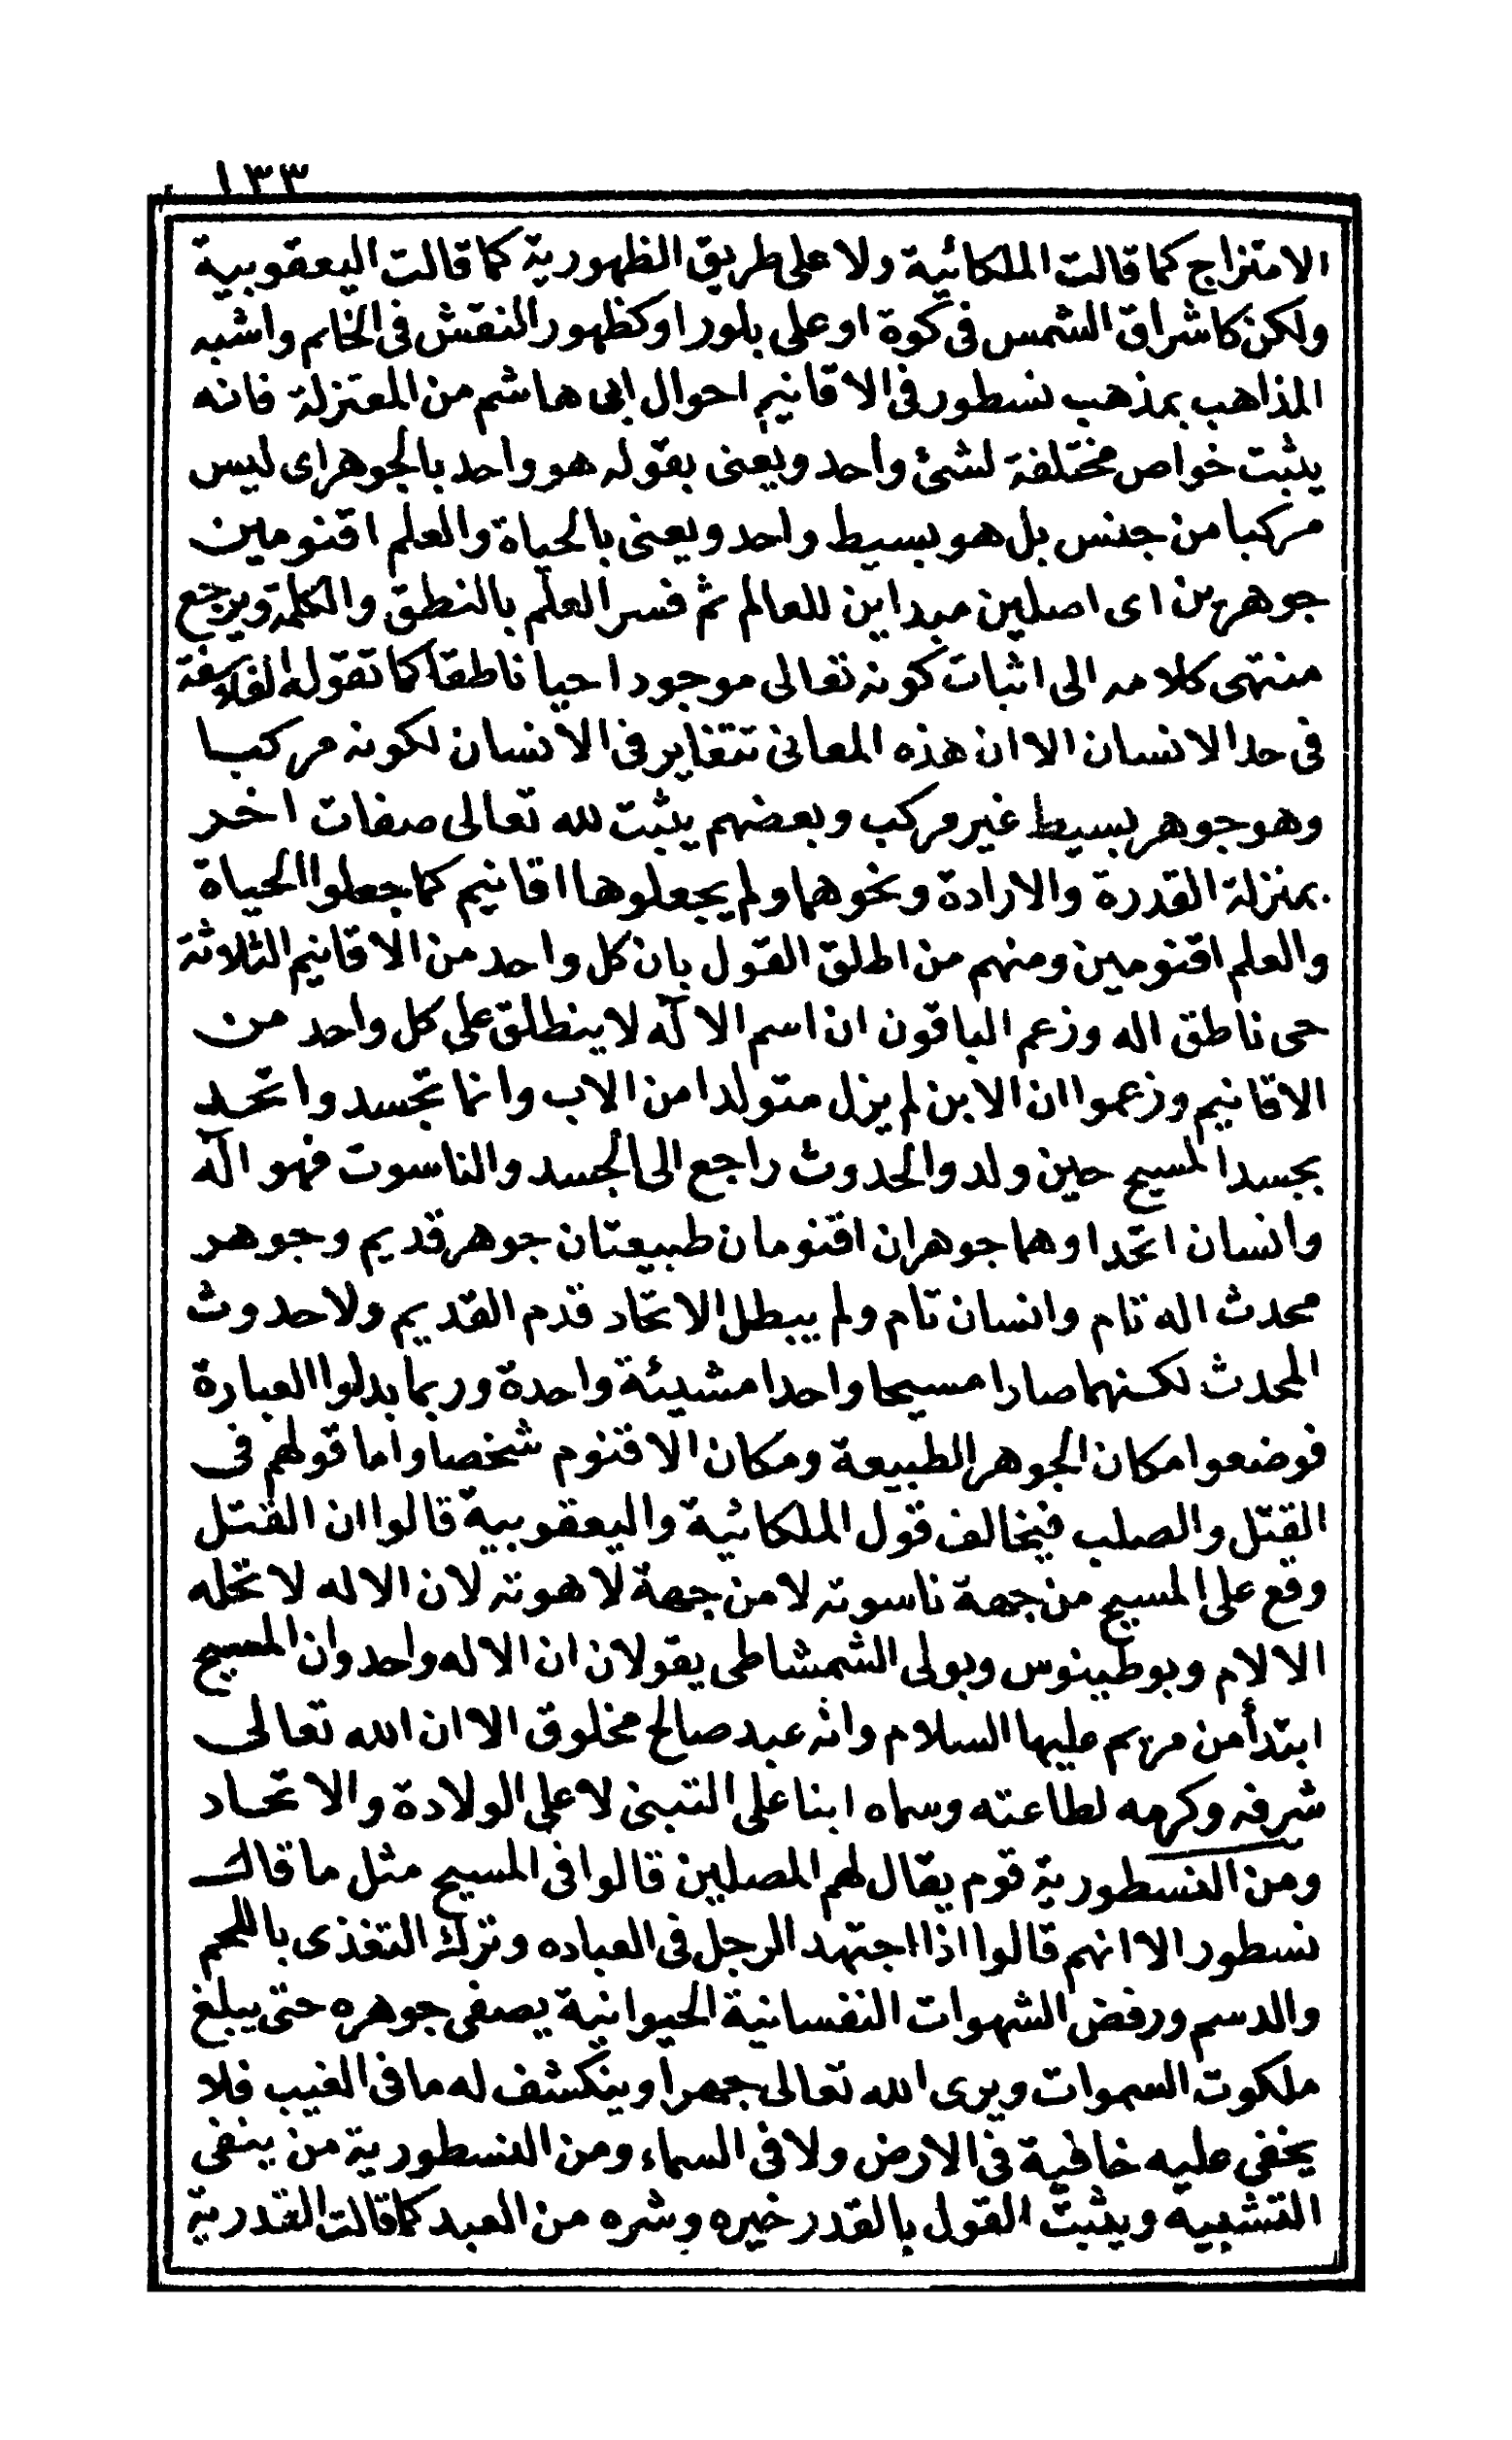 ١٣٣
الامتزاج كما قالت الملكائية ولا على طريق الظهورية كما قالت اليعقوبية
ولكن كاشراق الشمس فى كوة او على بلور او كظهور النقش فى الخاتم واشبه
المذاهب بمذهب نسطور فى الاقانيم احوال ابى هاشم من المعتزلة فانه
يثبت خواص مختلفة لشئ واحد ويعنى بقوله هو واحد بالجوهر اى ليس
مركبا من جنس بل هو بسيط واحد ويعنى بالحياة والعلم اقنومين
جوهرين اى اصلين مبداين للعالم ثم فسر العلم بالنطق والكلمة ويرجع
منتهى كلامه الى اثبات كونه تعالى موجودا حيا ناطقا كما تقوله الفلاسفة
فى حد الانسان الا ان هذه المعانى تتغاير فى الانسان لكونه مركبا
وهو جوهر بسيط غير مركب وبعضهم يثبت لله تعالى صفات اخر
بمنزلة القدرة والارادة ونحوهما ولم يجعلوها اقانيم كما جعلوا الحياة
والعلم اقنومين ومنهم من اطلق القول بان كل واحد من الاقانيم الثلاثة
حى ناطق اله وزعم الباقون ان اسم الاآله لا ينطلق على كل واحد من
الاقانيم وزعموا ان الابن لم يزل متولدا من الاب وانما تجسد واتحد
بجسد المسيح حين ولد والحدوث راجع الى الجسد والناسوت فهو اآله
وانسان اتحدا وهما جوهران اقنومان طبيعتان جوهر قديم وجوهر
محدث اله تام وانسان تام ولم يبطل الاتحاد قدم القديم ولا حدوث
المحدث لكنهما صارا مسيحا واحدا مشيئة واحدة وربما بدلوا العبارة
فوضعوا مكان الجوهر الطبيعة ومكان الاقنوم شخصا واما قولهم فى
القتل والصلب فيخالف قول الملكائية واليعقوبية قالوا ان القتل
وقع على المسيح من جهة ناسوته لا من جهة لاهوته لان الاله لا تحله
الالام وبوطينوس وبولى الشمشاطى يقولان ان الاله واحد وان المسيح
ابتدأ من مريم عليها السلام وانه عبد صالح مخلوق الا ان الله تعالى
شرفه وكرمه لطاعته وسماه ابنا على التبنى لا على الولادة والاتحاد
ومن النسطورية قوم يقال لهم المصلين قالوا فى المسيح مثل ما قال
نسطور الا انهم قالوا اذا اجتهد الرجل فى العباده وترك التغذى باللحم
والدسم ورفض الشهوات النفسانية الحيوانية يصفى جوهره حتى يبلغ
ملكوت السموات ويرى الله تعالى جهرا وينكشف له ما فى الغيب فلا
يخفى عليه خافية فى الارض ولا فى السماء ومن النسطورية من ينفى
التشبيه ويثبت القول بالقدر خيره وشره من العبد كما قالت القدرية